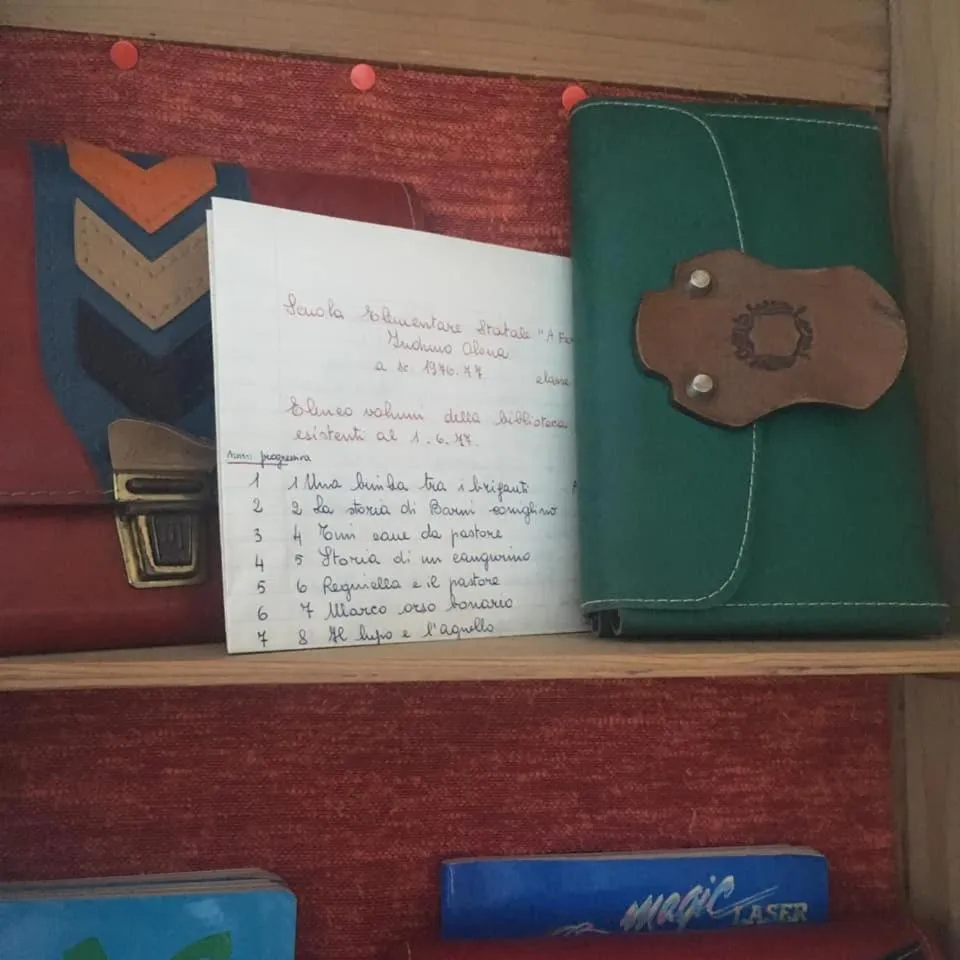 Scuola Elementare Statale "A Fe
Induno Olona
a sc. 1976.77
classe
Elenco volumi della biblioteca
esistenti al 1.6.77.
progressivo
1 1 Una bimba tra i briganti A
2 2 La storia di Barni coniglino
3 4 Tini cane da pastore
4 5 Storia di un cangurino
5 6 Reginella e il pastore
6 7 Marco orso bonario
7 8 Il lupo e l'agnello
magic
LASER